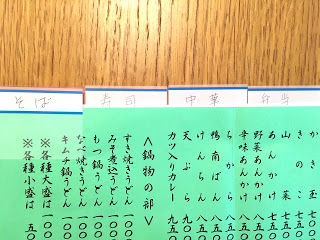 そば
寿司
中華
弁当
きのこ 七五
山菜 七五〇
あんかけ 七五〇
野菜あんかけ 八五
辛味あんかけ 八五
ちから 八五
鴨南ばん 八五
けんちん 八五
天ぷら 九五
カツ入りカレー 九五〇
<鍋物の部>
すき焼きうどん 一〇〇
みそ煮込うどん 一〇〇
もつ鍋うどん 一〇〇
なべ焼きうどん 一〇〇
キムチ鍋うどん 一〇〇
※各種大盛は 一〇〇
※各種小盛は 五〇